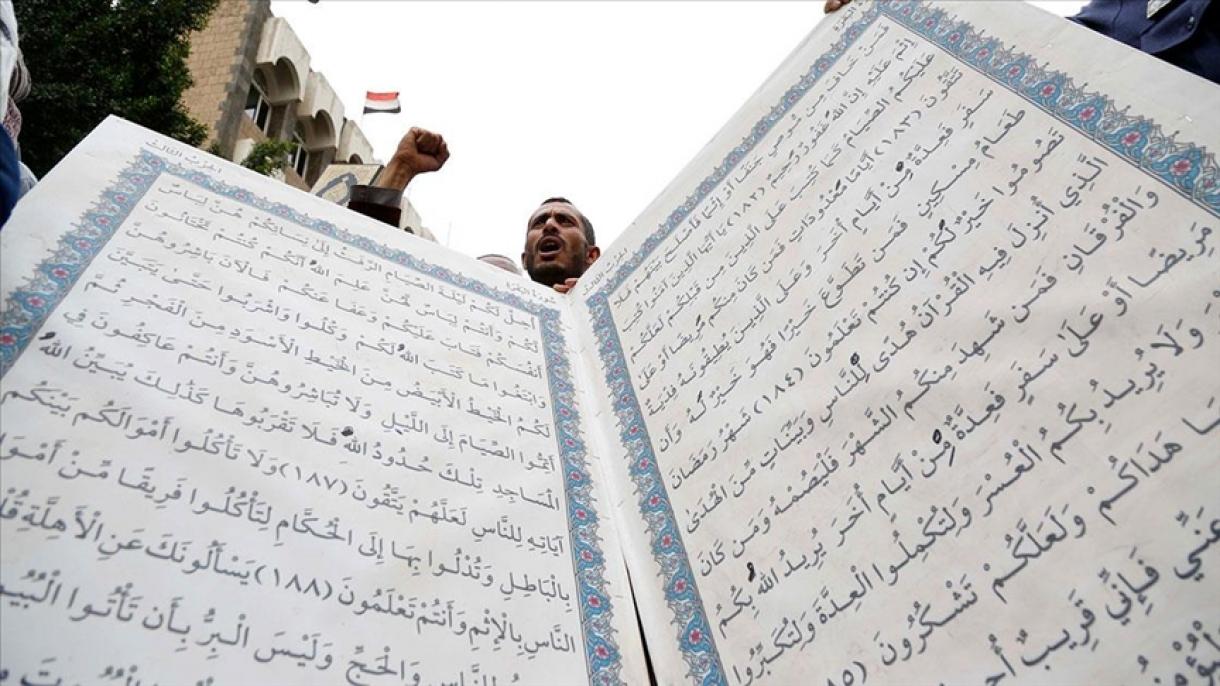 الحزب الثالث
فَمَنْ خَافَ مِن مُّوصٍ جَنَفًا أَوْ إِثْمًا فَأَصْلَحَ بَيْنَهُمْ فَلَا
إِثْمَ عَلَيْهِ إِنَّ اللهَ غَفُورٌ رَّحِيمٌ (١٨٢) يَا أَيُّهَا الَّذِينَ آمَنُوا كُتِبَ
عَلَيْكُمُ الصِّيَامُ كَمَا كُتِبَ عَلَى الَّذِينَ مِن قَبْلِكُمْ لَعَلَّكُمْ
تَتَّقُونَ (١٨٣) أَيَّامًا مَّعْدُودَاتٍ فَمَن كَانَ مِنكُم مَّرِيضًا أَوْ عَلَى
سَفَرٍ فَعِدَّةٌ مِّنْ أَيَّامٍ أُخَرَ وَعَلَى الَّذِينَ يُطِيقُونَهُ فِدْيَةٌ
طَعَامُ مِسْكِينٍ فَمَن تَطَوَّعَ خَيْرًا فَهُوَ خَيْرٌ لَّهُ وَأَن
تَصُومُوا خَيْرٌ لَّكُمْ إِن كُنتُمْ تَعْلَمُونَ (١٨٤) شَهْرُ رَمَضَانَ
الَّذِي أُنزِلَ فِيهِ الْقُرْآنُ هُدًى لِّلنَّاسِ وَبَيِّنَاتٍ مِّنَ الْهُدَىٰ
وَالْفُرْقَانِ فَمَن شَهِدَ مِنكُمُ الشَّهْرَ فَلْيَصُمْهُ وَمَن كَانَ
مَرِيضًا أَوْ عَلَىٰ سَفَرٍ فَعِدَّةٌ مِّنْ أَيَّامٍ أُخَرَ يُرِيدُ اللهُ بِكُمُ
وَلَا يُرِيدُ بِكُمُ الْعُسْرَ وَلِتُكْمِلُوا الْعِدَّةَ وَلِتُكَبِّرُوا
هَدَاكُمْ وَلَعَلَّكُمْ تَشْكُرُونَ
عَنِّي فَإِنِّي قَرِيبٌ
الحزب الثالث
أُحِلَّ لَكُمْ لَيْلَةَ الصِّيَامِ الرَّفَثُ إِلَىٰ نِسَائِكُمْ هُنَّ لِبَاسٌ
لَّكُمْ وَأَنتُمْ لِبَاسٌ لَّهُنَّ عَلِمَ اللهُ أَنَّكُمْ كُنتُمْ تَخْتَانُونَ
أَنفُسَكُمْ فَتَابَ عَلَيْكُمْ وَعَفَا عَنكُمْ فَالْآنَ بَاشِرُوهُنَّ
وَابْتَغُوا مَا كَتَبَ اللهُ لَكُمْ وَكُلُوا وَاشْرَبُوا حَتَّىٰ يَتَبَيَّنَ
لَكُمُ الْخَيْطُ الْأَبْيَضُ مِنَ الْخَيْطِ الْأَسْوَدِ مِنَ الْفَجْرِ ثُمَّ
أَتِمُّوا الصِّيَامَ إِلَى اللَّيْلِ وَلَا تُبَاشِرُوهُنَّ وَأَنتُمْ عَاكِفُونَ فِي
الْمَسَاجِدِ تِلْكَ حُدُودُ اللهِ فَلَا تَقْرَبُوهَا كَذَٰلِكَ يُبَيِّنُ اللهُ
آيَاتِهِ لِلنَّاسِ لَعَلَّهُمْ يَتَّقُونَ (١٨٧) وَلَا تَأْكُلُوا أَمْوَالَكُم بَيْنَكُم
بِالْبَاطِلِ وَتُدْلُوا بِهَا إِلَى الْحُكَّامِ لِتَأْكُلُوا فَرِيقًا مِّنْ
النَّاسِ بِالْإِثْمِ وَأَنتُمْ تَعْلَمُونَ (١٨٨) يَسْأَلُونَكَ عَنِ الْأَهِلَّةِ
وَالْحَجِّ وَلَيْسَ الْبِرُّ بِأَن تَأْتُوا